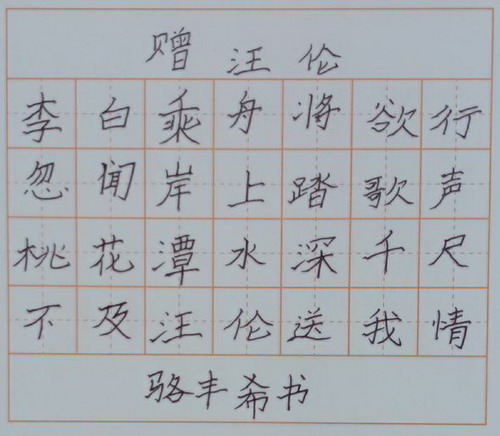 赠汪伦
李白乘舟将欲行
忽闻岸上踏歌声
桃花潭水深千尺
不及汪伦送我情
骆丰希书